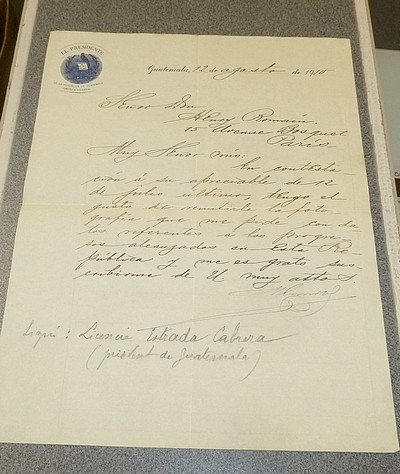 EL PRESIDENTE
Guatemala, 12 de agosto de 1910
Señor Don
Henry Romain
15 Avenue Bosquet
Paris
Muy Señor mio
En contesta-
ción á su apreciable de 12
de julio último, tengo el
gusto de remitirle la foto
grafía que me pide, con da
tos referentes á los progre-
sos alcanzados en esta Re-
pública y me es grato sus-
cribirme de U muy atto S.
Signé : Licencié Estrada Cabrera
(président de Guatemala)